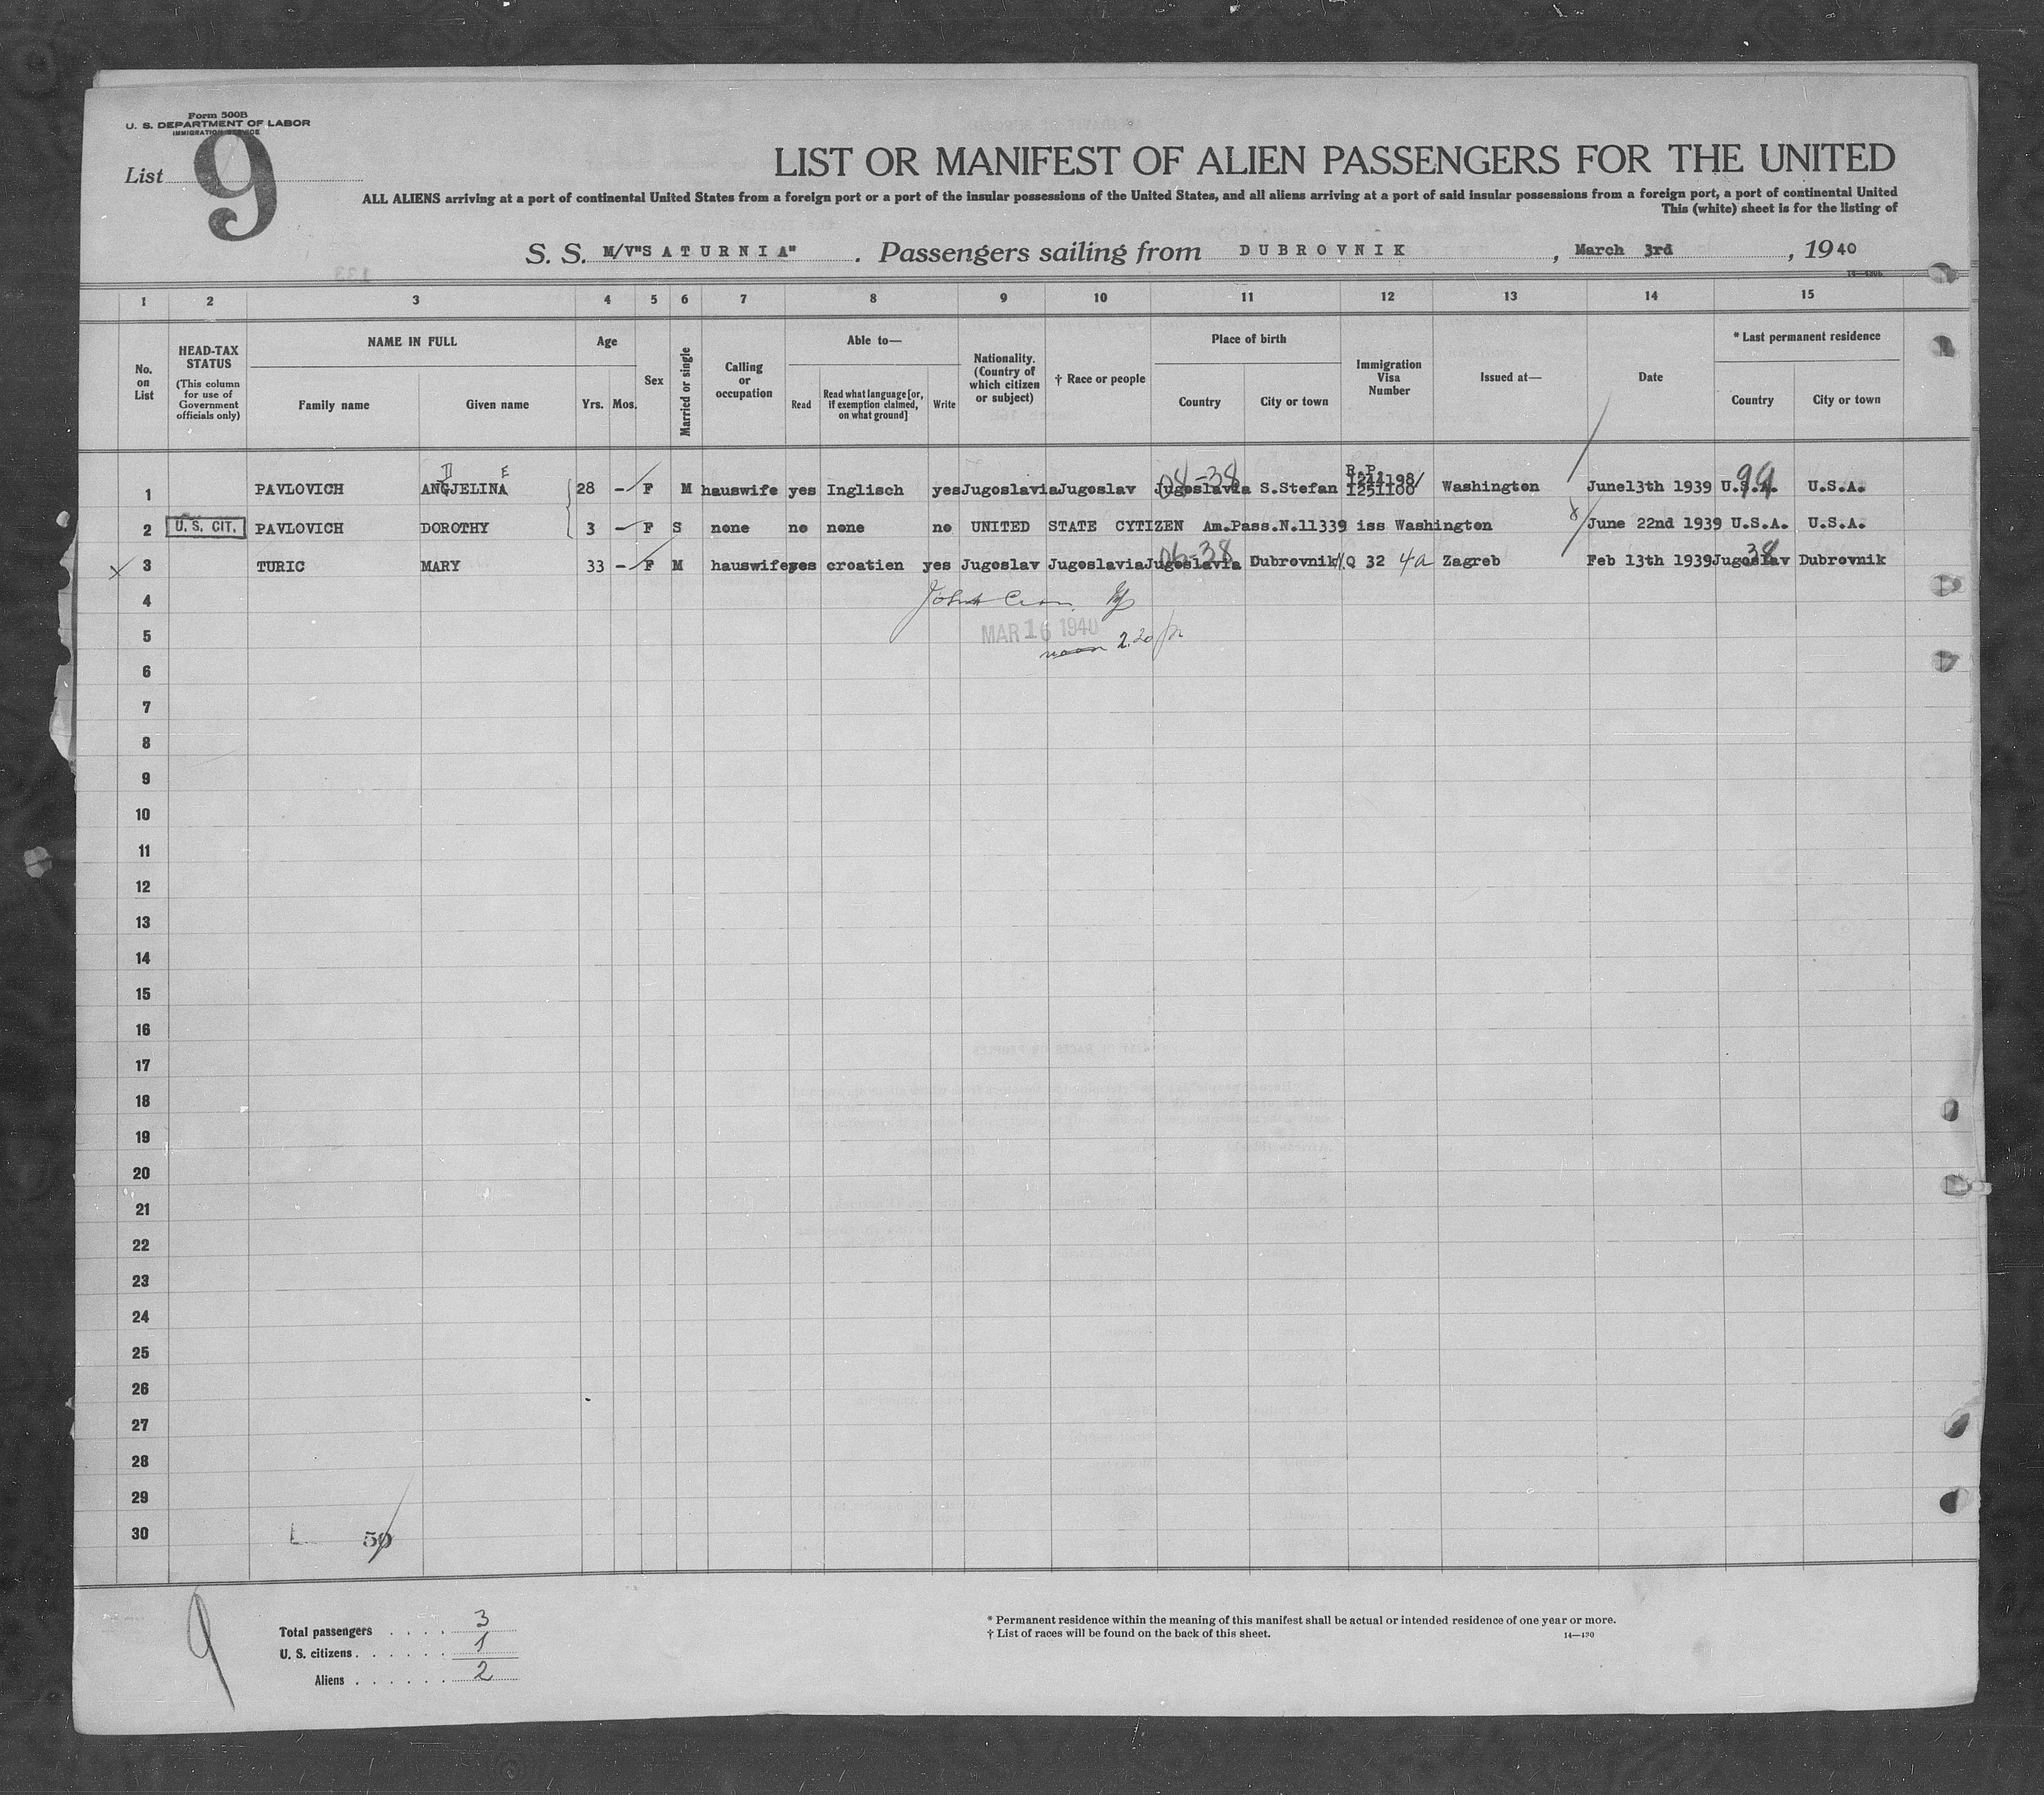 Form 500B
U. S. DEPARTMENT OF LABOR
IMMIGRATION SERVICE
List 9
LIST OR MANIFEST OF ALIEN PASSENGERS FOR THE UNITED
ALL ALIENS arriving at a port of continental United States from a foreign port or a port of the insular possessions of the United States, and all aliens arriving at a port of said insular possessions from a foreign port, a port of continental United
This (white) sheet is for the listing of
S. S. M/V"SATURNIA" . Passengers sailing from DUBROVNIK , March 3rd , 1940
1 2 3 4 5 6 7 8 9 10 11 12 13 14 15
No. on List
HEAD-TAX STATUS (This column for use of Government officials only)
NAME IN FULL
Family name Given name
Age
Yrs. Mos.
Sex
Married or single
Calling or occupation
Able to—
Read Read what language [or, if exemption claimed, on what ground] Write
Nationality. (Country of which citizen or subject)
† Race or people
Place of birth
Country City or town
Immigration Visa Number
Issued at—
Date
* Last permanent residence
Country City or town
D E 04-38 R.P. 99
1 PAVLOVICH ANGJELINA 28 - F M hauswife yes Inglisch yes Jugoslavia Jugoslav Jugoslavia S.Stefan 1251100 Washington June13th 1939 U.S.A. U.S.A.
2 U. S. CIT. PAVLOVICH DOROTHY 3 - F S none no none no UNITED STATE CYTIZEN Am.Pass.N.11339 iss Washington June 22nd 1939 U.S.A. U.S.A.
06-38 38
x 3 TURIC MARY 33 - F M hauswife yes croatien yes Jugoslav Jugoslavia Jugoslavia Dubrovnik Q 32 4a Zagreb Feb 13th 1939 Jugoslav Dubrovnik
4 John
5 MAR 16 1940 2.20
noon
6
7
8
9
10
11
12
13
14
15
16
17
18
19
20
21
22
23
24
25
26
27
28
29
30 50
9
Total passengers . . . . 3
U. S. citizens . . . . . . 1
Aliens . . . . . . 2
* Permanent residence within the meaning of this manifest shall be actual or intended residence of one year or more.
† List of races will be found on the back of this sheet.
14—120